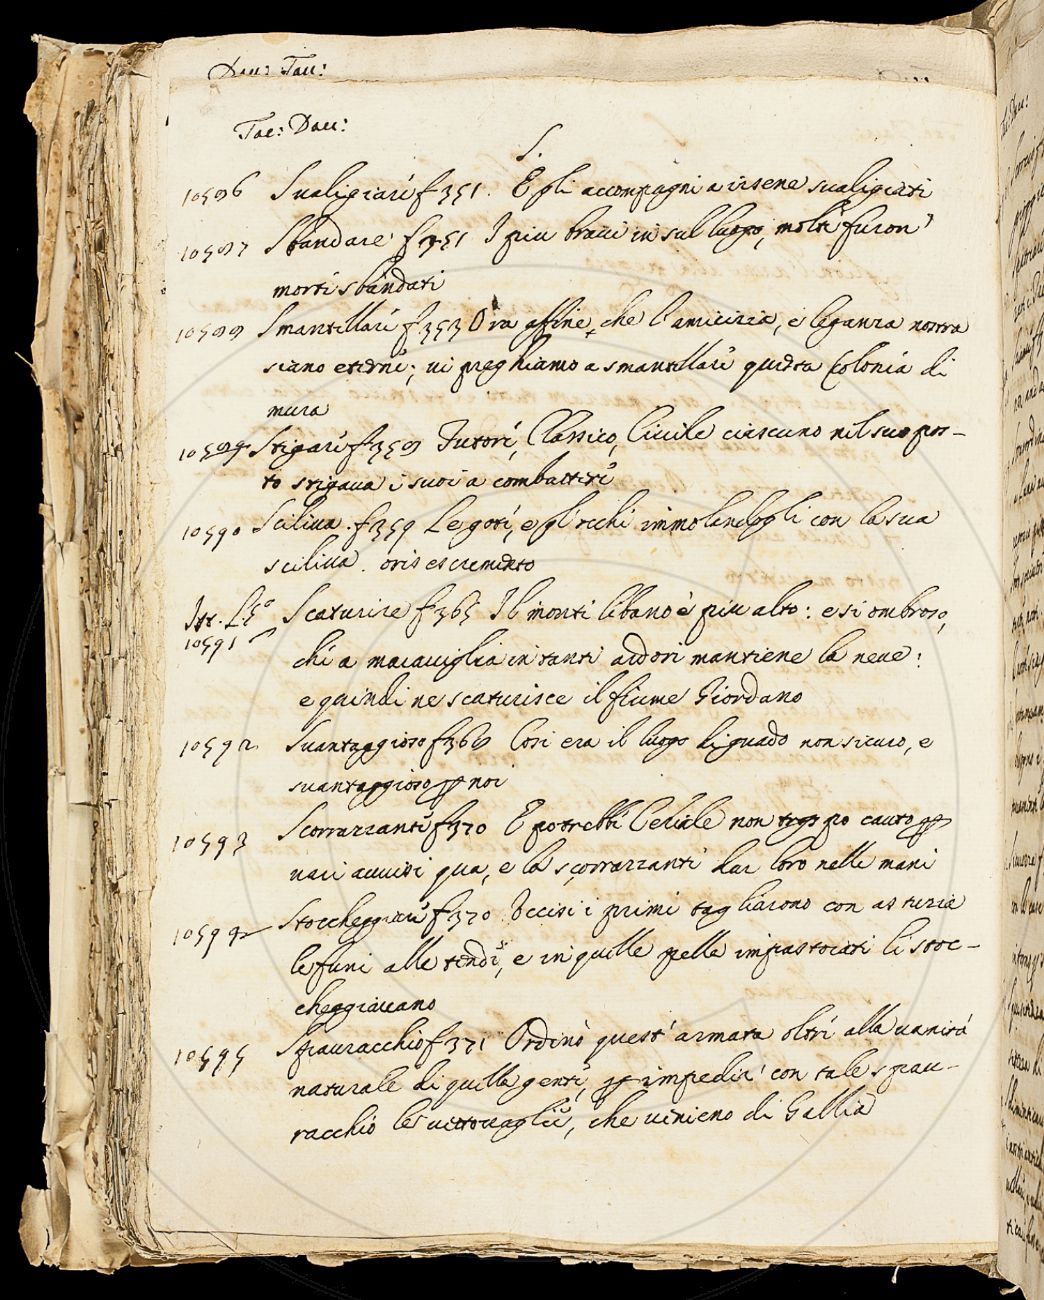 Dau: Tau:
Tac: Dau:
S.
10586 Sualigiare f 351. E gli accompagni a irsene sualigiati
10587 Sbandare f 351 I piu braui in sul luogo, molti furon'
morti sbandati
10588 Smantillare f 353 Ora affine, che l'amicizia, e leganza nostra
siano eterne; ui preghiamo a smantillare questa Colonia di
mura
10589 Stigare f 358 Tutori, Classico, Ciuile ciascuno nel suo por-
to stigaua i suoi a combattere
10590 Sciliua f 359 Le goti, e gl'occhi immolandogli con la sua
sciliua. oris escremento
10591 Scaturire f 365 Il monte libano è piu alto: e si ombroso,
che a marauiglia in tanti ardori mantiene la neue:
e quindi ne scaturisce il fiume Giordano
10592 Suantaggioso f 368 Cosi era il luogo di guado non sicuro, e
suantaggioso p noi
10593 Scorrazzante f 370 E potrebbe Ceriale non troppo cauto p
uari auuisi qua, e la scorrazzanti dar loro nelle mani
10594 Stoccheggiare f 370 Occisi i primi tagliarono con asturia
le funi alle tende, e in quelle pelle impastoiati li stoc-
cheggiauano
10595 Spauracchio f 371 Ordinò quest' armata oltre alla uanità
naturale di quelle genti, p impedir' con tale spau-
racchio le uettouaglie, che uenieno di Gallia